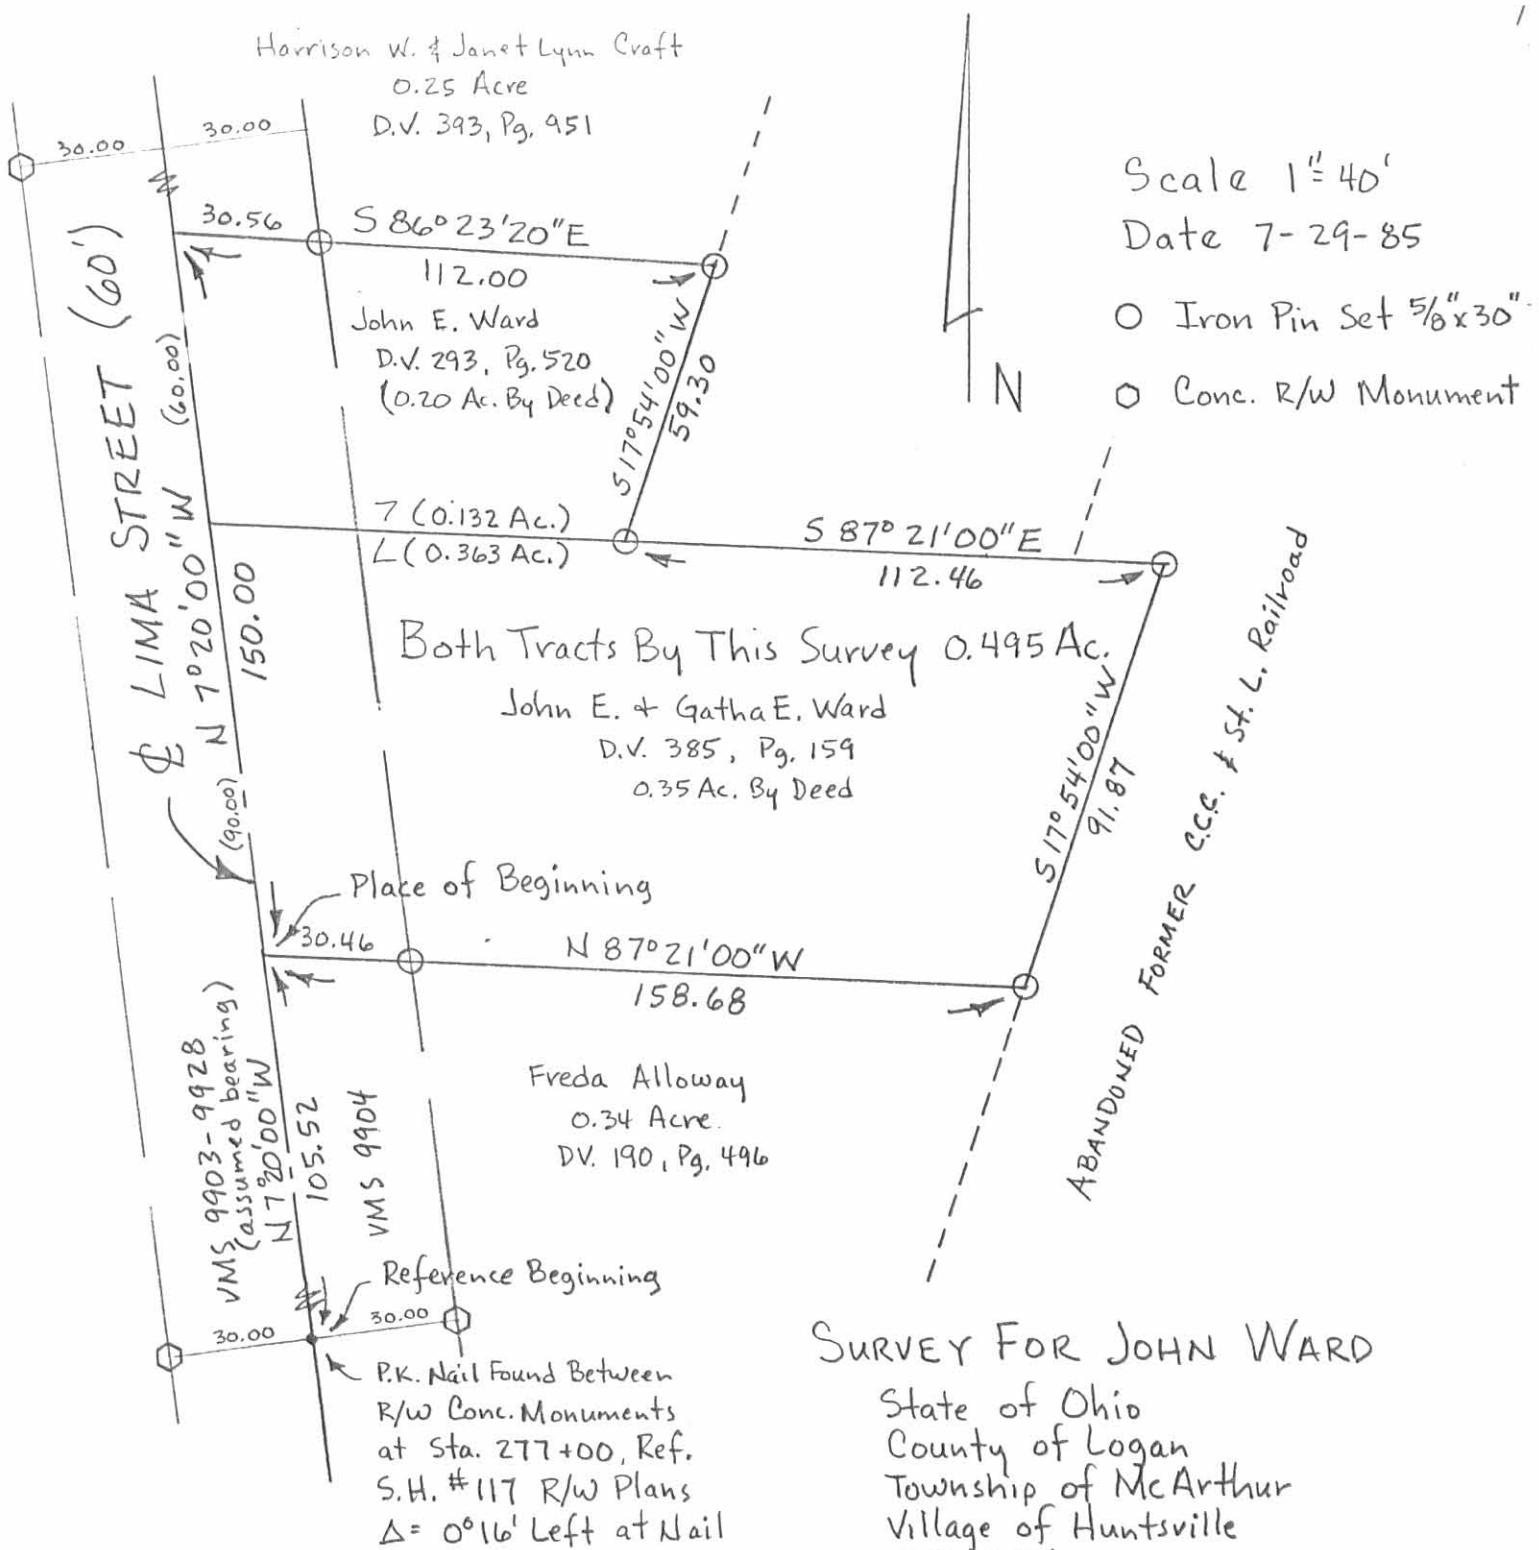 Harrison W. & Janet Lynn Craft
0.25 Acre
D.V. 393, Pg. 951
30.00
30.00
30.56
S 86° 23' 20" E
112.00
John E. Ward
D.V. 293, Pg. 520
(0.20 Ac. By Deed)
S 17° 54' 00" W
59.30
Scale 1" = 40'
Date 7-29-85
Iron Pin Set 5/8" x 30"
Conc. R/W Monument
N
℄ LIMA STREET (60')
N 7° 20' 00" W
(60.00)
150.00
(90.00)
7 (0.132 Ac.)
L (0.363 Ac.)
S 87° 21' 00" E
112.46
Both Tracts By This Survey 0.495 Ac.
John E. + Gatha E. Ward
D.V. 385, Pg. 159
0.35 Ac. By Deed
S 17° 54' 00" W
91.87
ABANDONED FORMER C.C.C. & St. L. Railroad
Place of Beginning
30.46
N 87° 21' 00" W
158.68
Freda Alloway
0.34 Acre.
DV. 190, Pg. 496
VMS 9903-9928
(assumed bearing)
N 7° 20' 00" W
105.52
VMS 9904
Reference Beginning
30.00
30.00
P.K. Nail Found Between
R/W Conc. Monuments
at Sta. 277+00, Ref.
S.H. #117 R/W Plans
Δ = 0° 16' Left at Nail
SURVEY FOR JOHN WARD
State of Ohio
County of Logan
Township of McArthur
Village of Huntsville